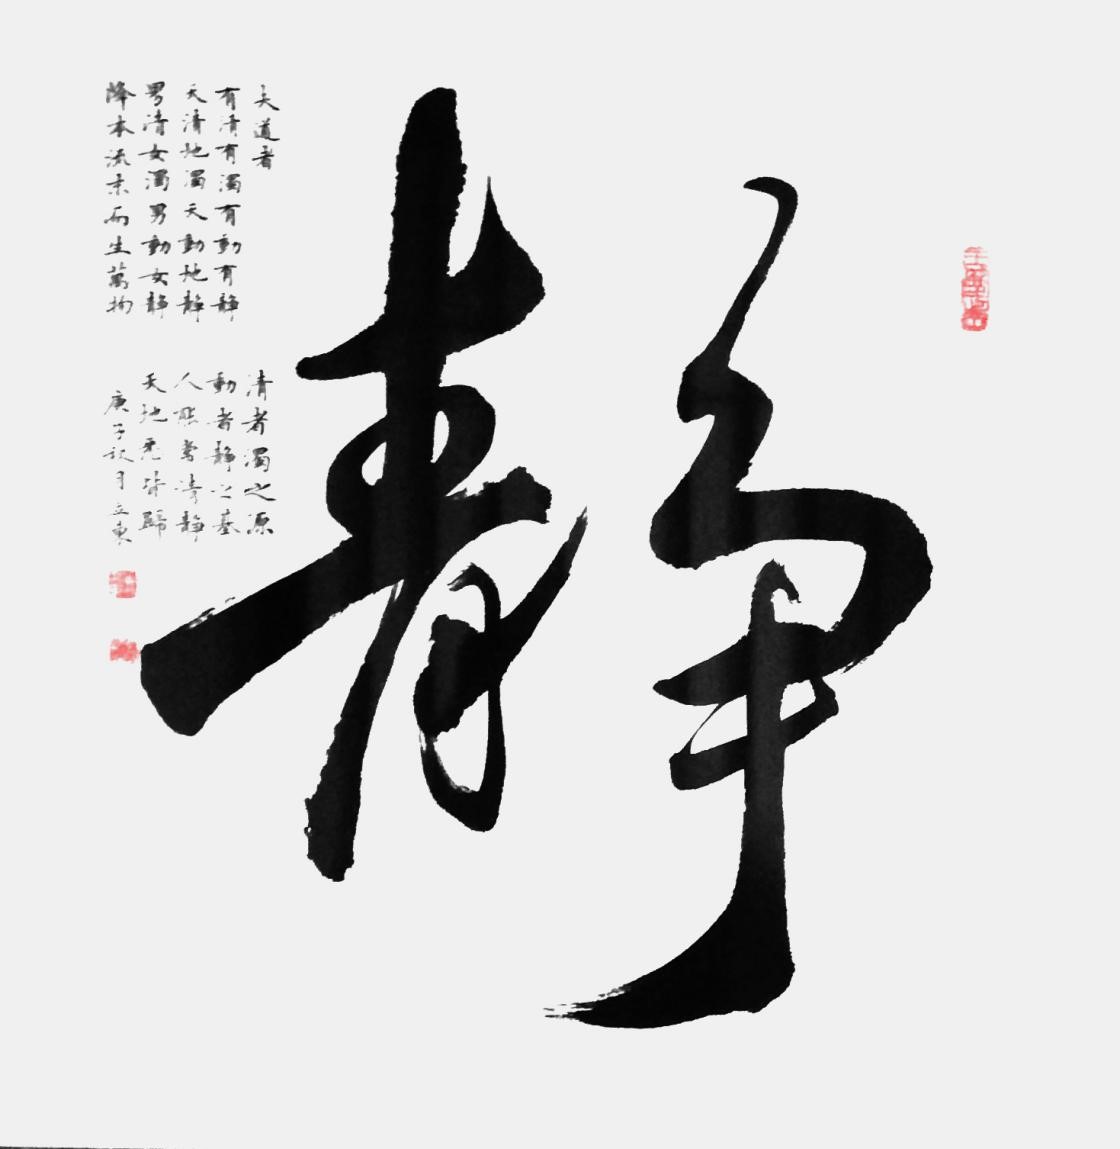 静
夫道者
有清有濁有動有静
天清地濁天動地静
男清女濁男動女静
降本流末而生萬物
清者濁之源
動者静之基
人能常清静
天地悉皆歸
庚子秋月立東